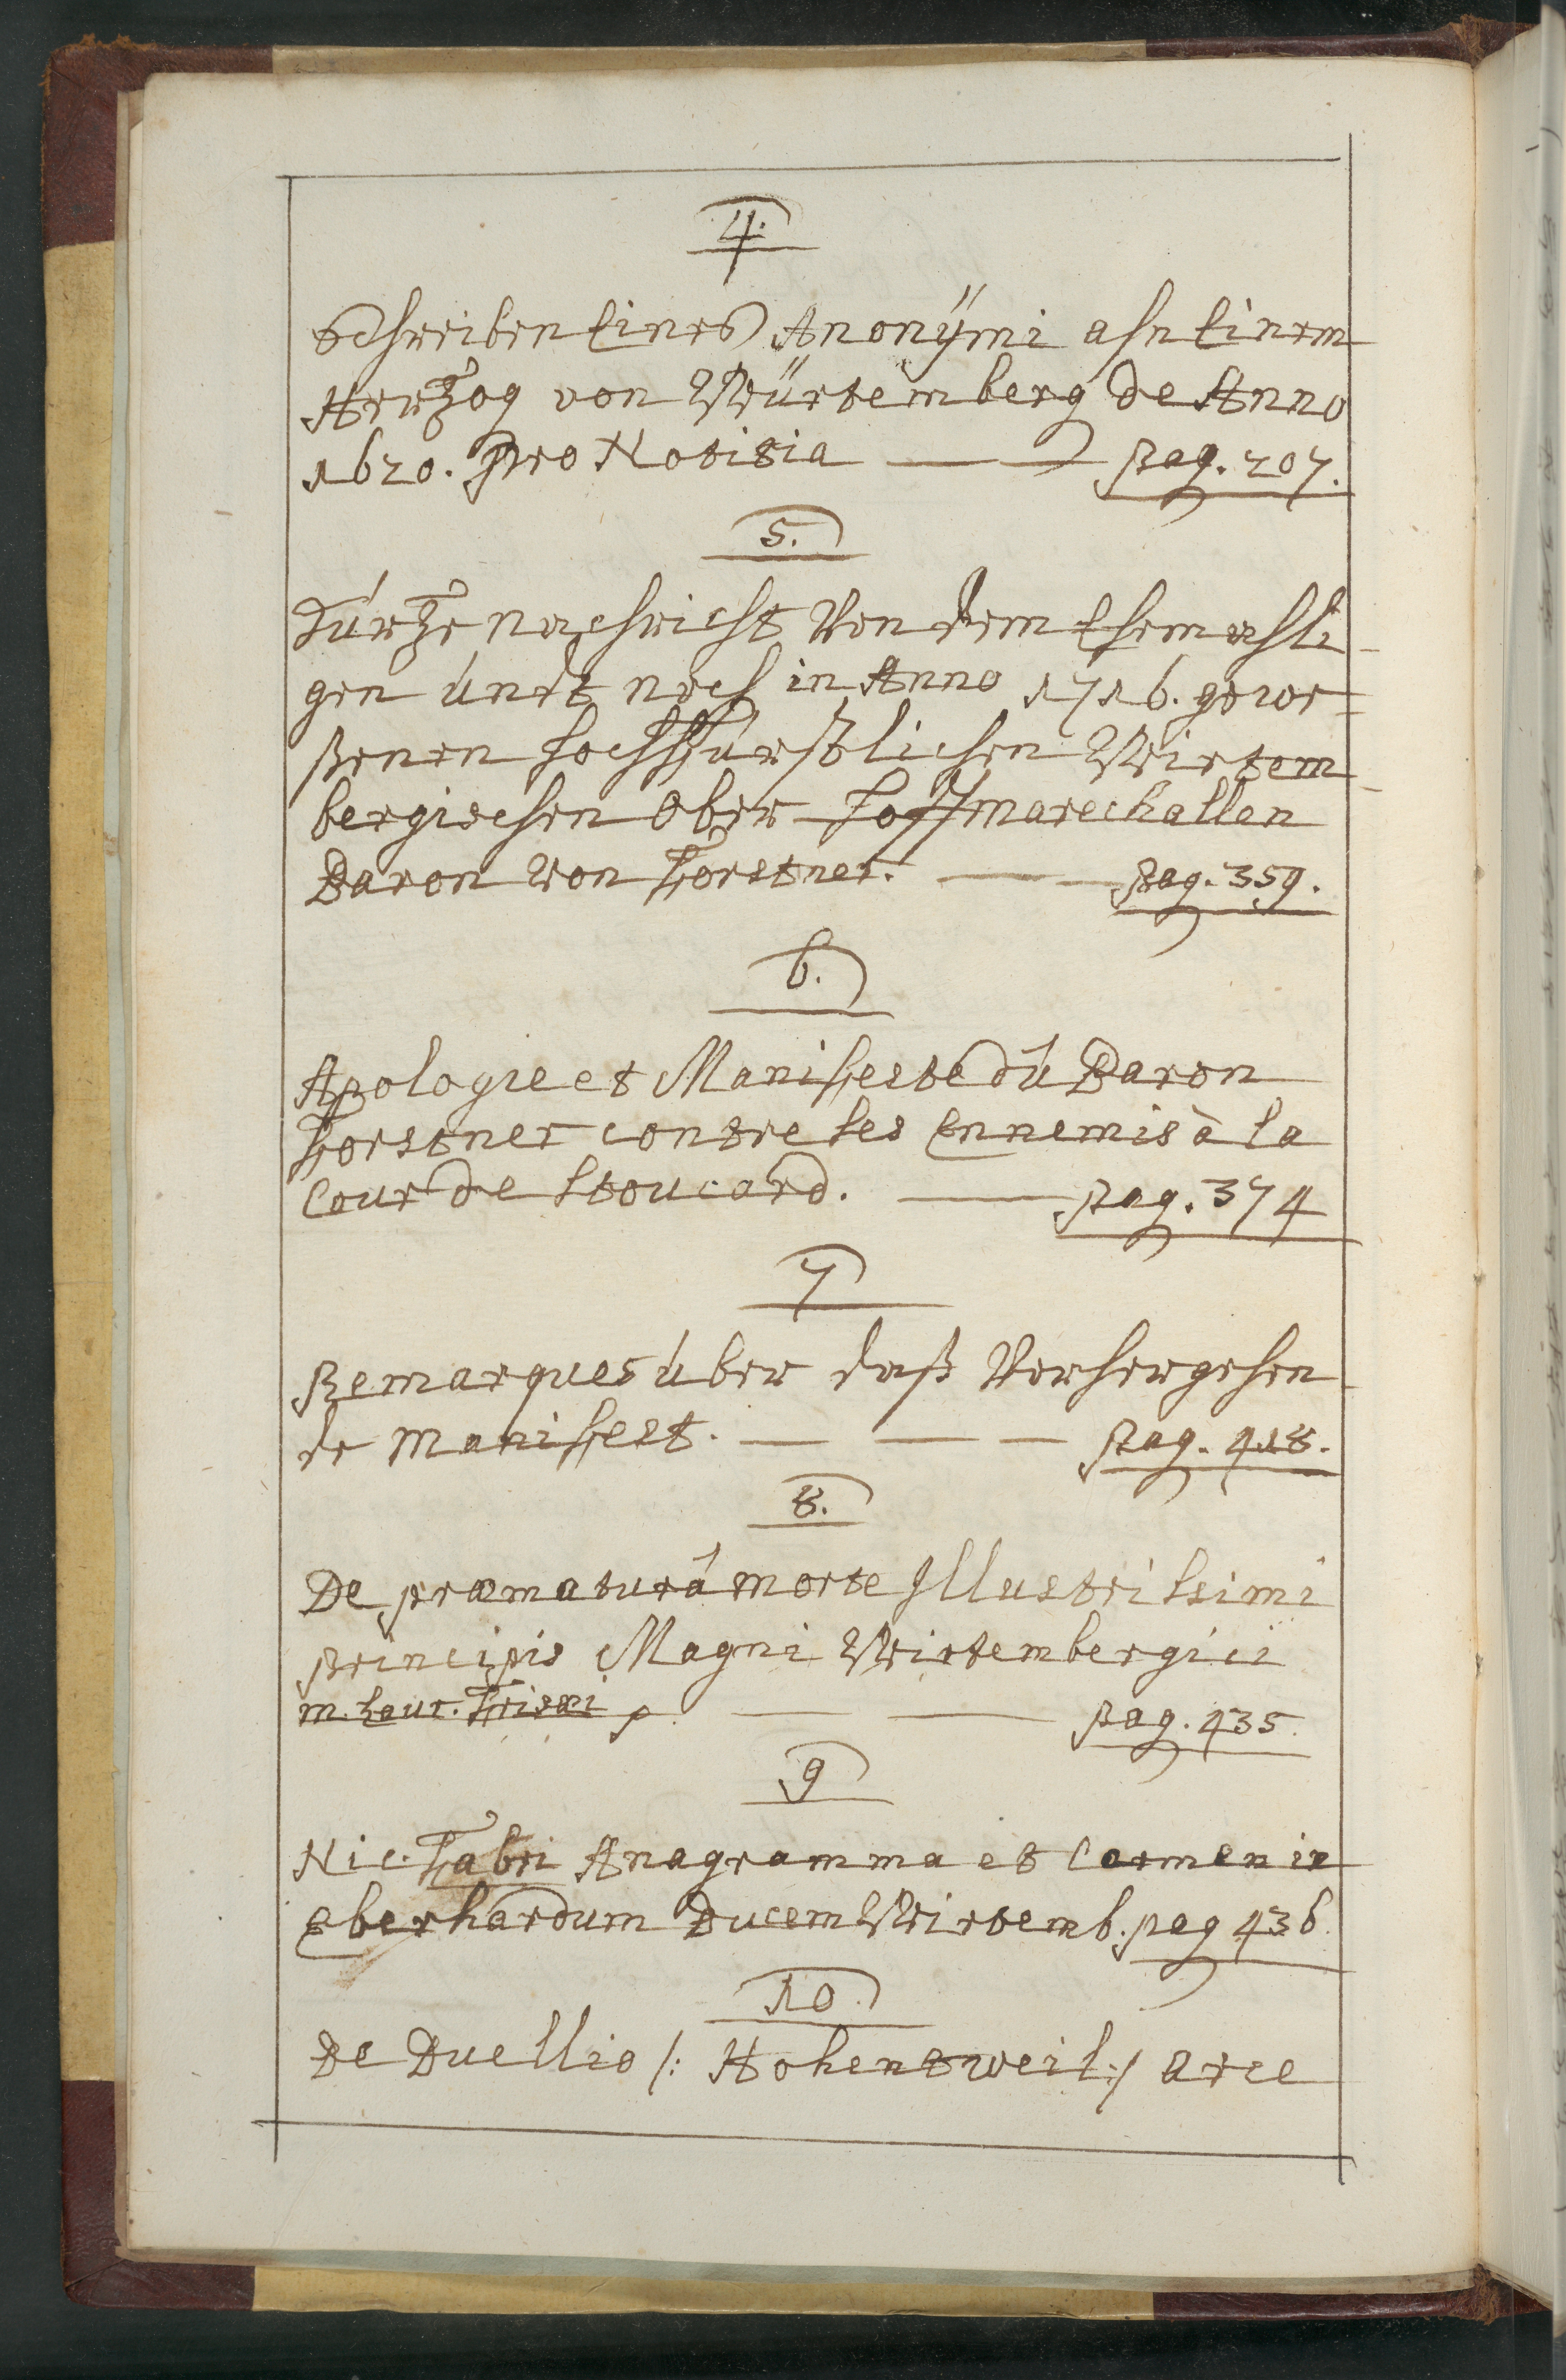 4.
Schreiben Eines Anonÿmi ahn Einem
Hertzog von Würtemberg de Anno
1620. pro Notitia — — pag. 207.
5.
Kurtze nachricht Von dem Ehemahli-
gen undt noch in Anno 1716. gewe-
ßenen hochfürstlichen Wirtem-
bergischen Ober-Hoffmarechallen
Baron von Forstner. — — pag. 359.
6.
Apologie et Manifeste du Baron
Forstner contre ses Ennemis à la
Cour de Stoucard. — pag. 374
7
Remarques über daß Vorhergehen-
de Manifest. — — — pag. 418.
8.
De præmaturâ morte Illustrissimi
principis Magni Wirtembergici
M. Laur. Frisæi — — pag. 435.
9
Nic. Fabri Anagramma et Carmen in
Eberhardum Ducem Wirtemb. pag 436.
10.
De Duellio /: Hohentweil :/ arce